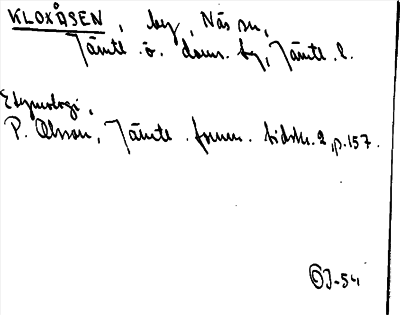 KLOXÅSEN, by, Näs sn,
Jämtl. ö. doms. by, Jämtl. l.
Etymologi,
P. Olsson, Jämtl. fornm. tidskr. 2, p. 157.
OJ-54